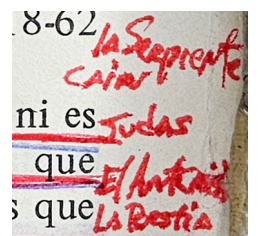 8-62
la Serpiente
Cain
ni es Judas
que
El Antikris
s que La Bestia